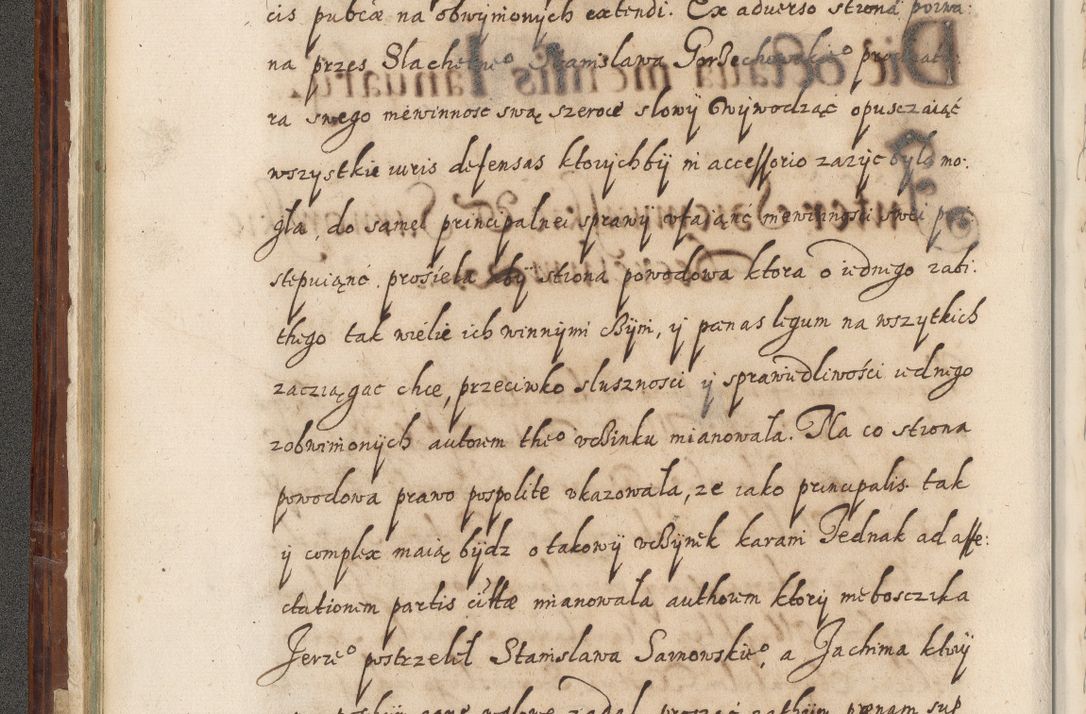 cis pubcæ na obwinionych extendi. Ex aduerso strona pozwa:
na przes Slachetneo Stanislawa Gorzechowskieo procurato
ra swego niewinnosc swą szeroce slowy wywodząć opusczaiąć
wszystkie iuris defensas ktorychby in accessorio zazyc była mo:
gła, do samei principalnei sprawy vfaiąnć niewinnosci swei pri
stepuiąnć prosieła aby strona powodowa ktora o iednego zabi:
thego tak wielie ich winnymi czyni, y pænas legum na wszytkich
zacziągac chce, przeciwko slusznosci y sprawiedliwości iednego
zobwinionych autorem theo vczinku mianowala. Na co strona
powodowa prawo pospolite vkazowała, ze iako principalis tak
y complex maią bydz o takowy vczynek karani Jednak ad affe:
ctationem partis cittæ mianowała authorem ktory nieboszczika
Jerzeo postrzelił Stanislawa Sarnowskieo, a Jachima ktory